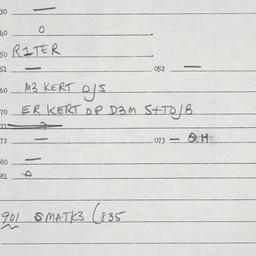 30 —
40 O
50 RITER
51 — 052 —
60 M3 KERT O/S
70 ER KERT OP D3M S+TO/B
71
72 — 073 — QH
80 —
81
901 SMATK3 (835